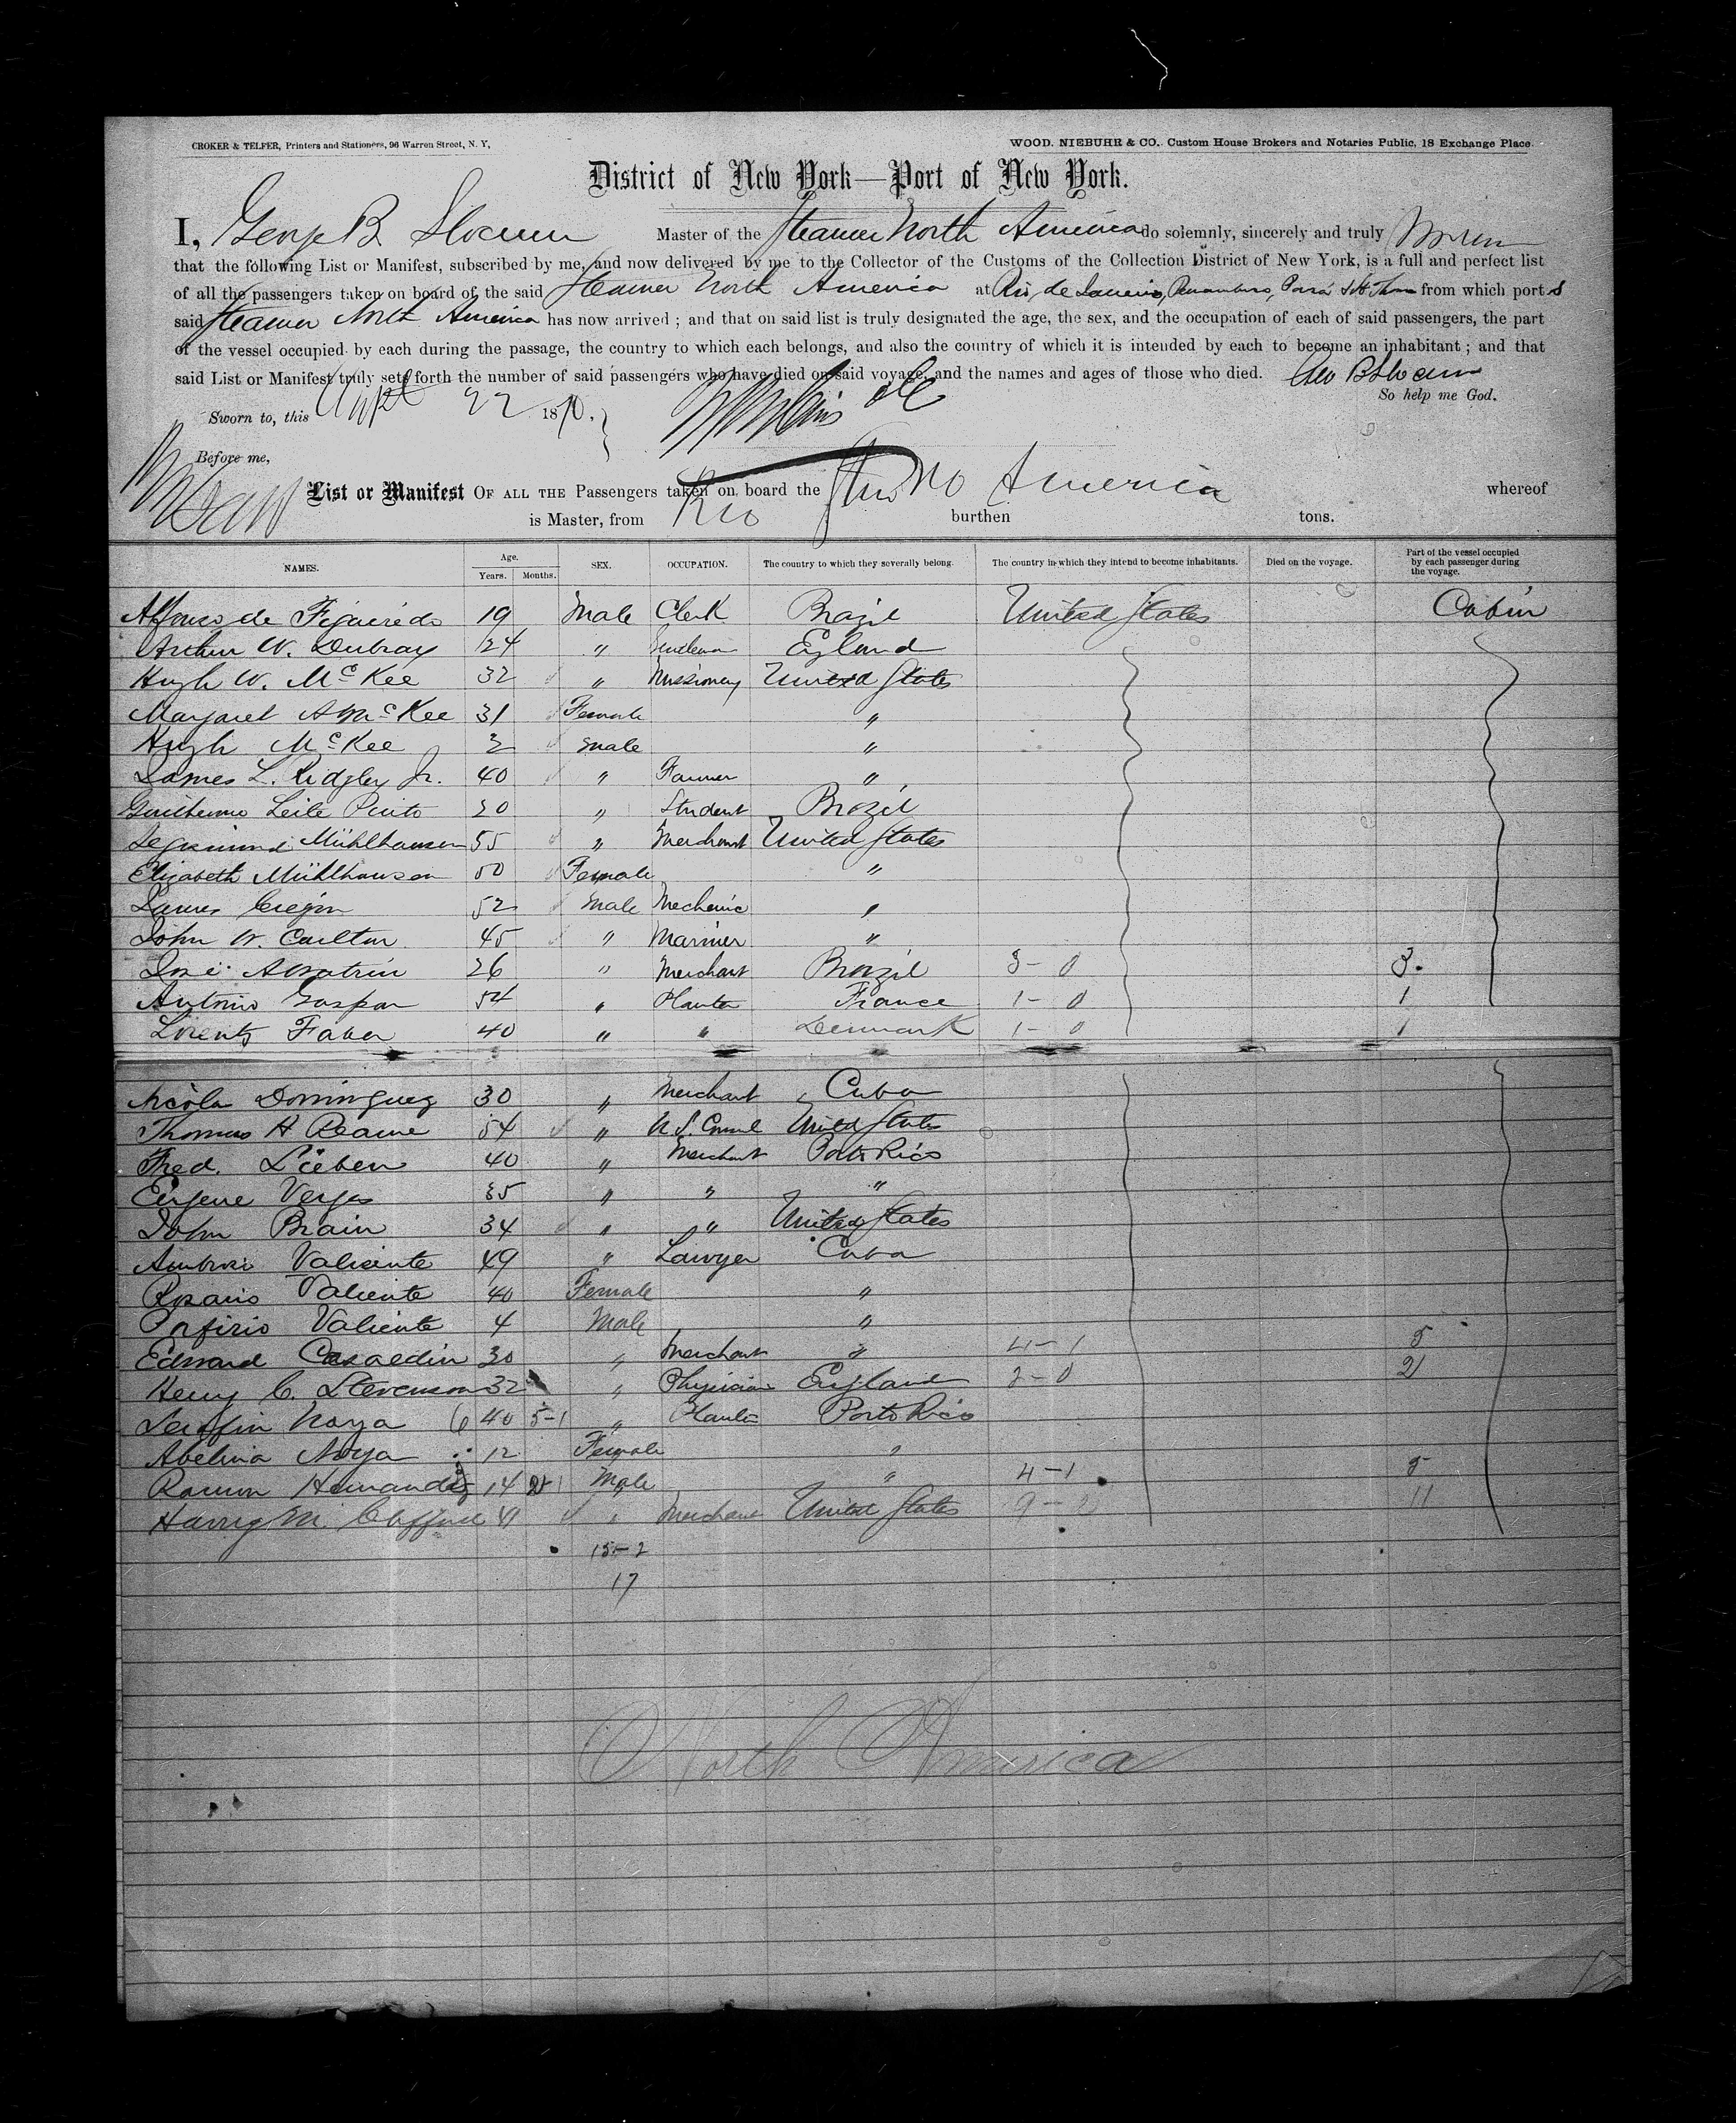 CROKER & TELFER, Printers and Stationers, 96 Warren Street, N. Y,
WOOD. NIEBUHR & CO., Custom House Brokers and Notaries Public, 18 Exchange Place.
District of New York—Port of New York.
I, George B. Slocum Master of the Steamer North America do solemnly, sincerely and truly
that the following List or Manifest, subscribed by me, and now delivered by me to the Collector of the Customs of the Collection District of New York, is a full and perfect list
of all the passengers taken on board of the said Steamer North America at Rio de Janeiro, Pernambuco, Pará & St Thos from which port s
said Steamer North America has now arrived; and that on said list is truly designated the age, the sex, and the occupation of each of said passengers, the part
of the vessel occupied by each during the passage, the country to which each belongs, and also the country of which it is intended by each to become an inhabitant; and that
said List or Manifest truly sets forth the number of said passengers who have died on said voyage, and the names and ages of those who died. Geo B Slocum
So help me God.
Sworn to, this 22 1870,
Before me,
List or Manifest OF ALL THE Passengers taken on board the Stmr No America whereof
is Master, from Rio burthen tons.
NAMES. Age. Years. Months. SEX. OCCUPATION. The country to which they severally belong. The country in which they intend to become inhabitants. Died on the voyage. Part of the vessel occupied by each passenger during the voyage.
Affonso de Figueiredo 19 Male Clerk Brazil United States Cabin
Arthur W. Dubray 24 " Gentleman England
Hugh W. McKee 32 " Missionary United States
Margaret A McKee 31 Female "
Hugh McKee 2 male "
James L. Ridgley Jr. 40 " Farmer "
Guilherme Leite Pinto 20 " Student Brazil
Segismund Mühlhausen 55 " Merchant United States
Elizabeth Mühlhausen 50 Female "
James Cregin 52 Male Mechanic "
John W. Carlton 45 " Mariner "
José 26 " Merchant Brazil 3-0 3.
Antonio Gaspar 54 " Planter France 1-0 1
Lorentz Faber 40 " " Denmark 1-0 1
Nicola Dominguez 30 " Merchant Cuba
Thomas H Pearne 54 " U.S. Consul United States
Fred. Lieben 40 " Merchant Porto Rico
Eugene Verges 35 " " "
John Brain 34 " " United States
Ambrosio Valiente 49 " Lawyer Cuba
Rosario Valiente 40 Female "
Porfirio Valiente 4 Male "
Edward Casaedin 30 " Merchant " 4-1 5
Henry C. Stevenson 32 " Physician England 2-0 2
Serafin Noya 40 5-1 " Planter Porto Rico
Abelina Noya 12 Female "
Ramon Hernandez 14 Male " 4-1 5
Harry M. Clifford 41 " Merchant United States 9-2 11
15-2
17
North America